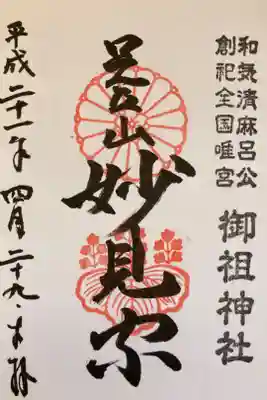 和気清麻呂公
創祀全国唯一宮
御祖神社
足立山
妙見宮
平成二十一年四月二十九日拝